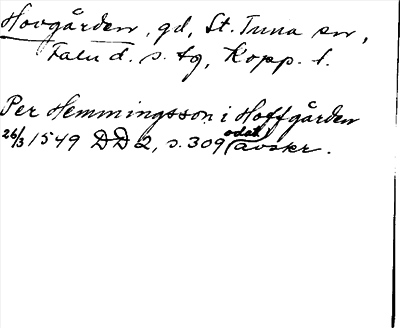 Hovgården, gd, St. Tuna sn,
Falu d. s. tg, Kopp. l.
Per Hemmingsson i Hoffgården
26/3 1549 DD 2, s. 309 (odat. avskr.